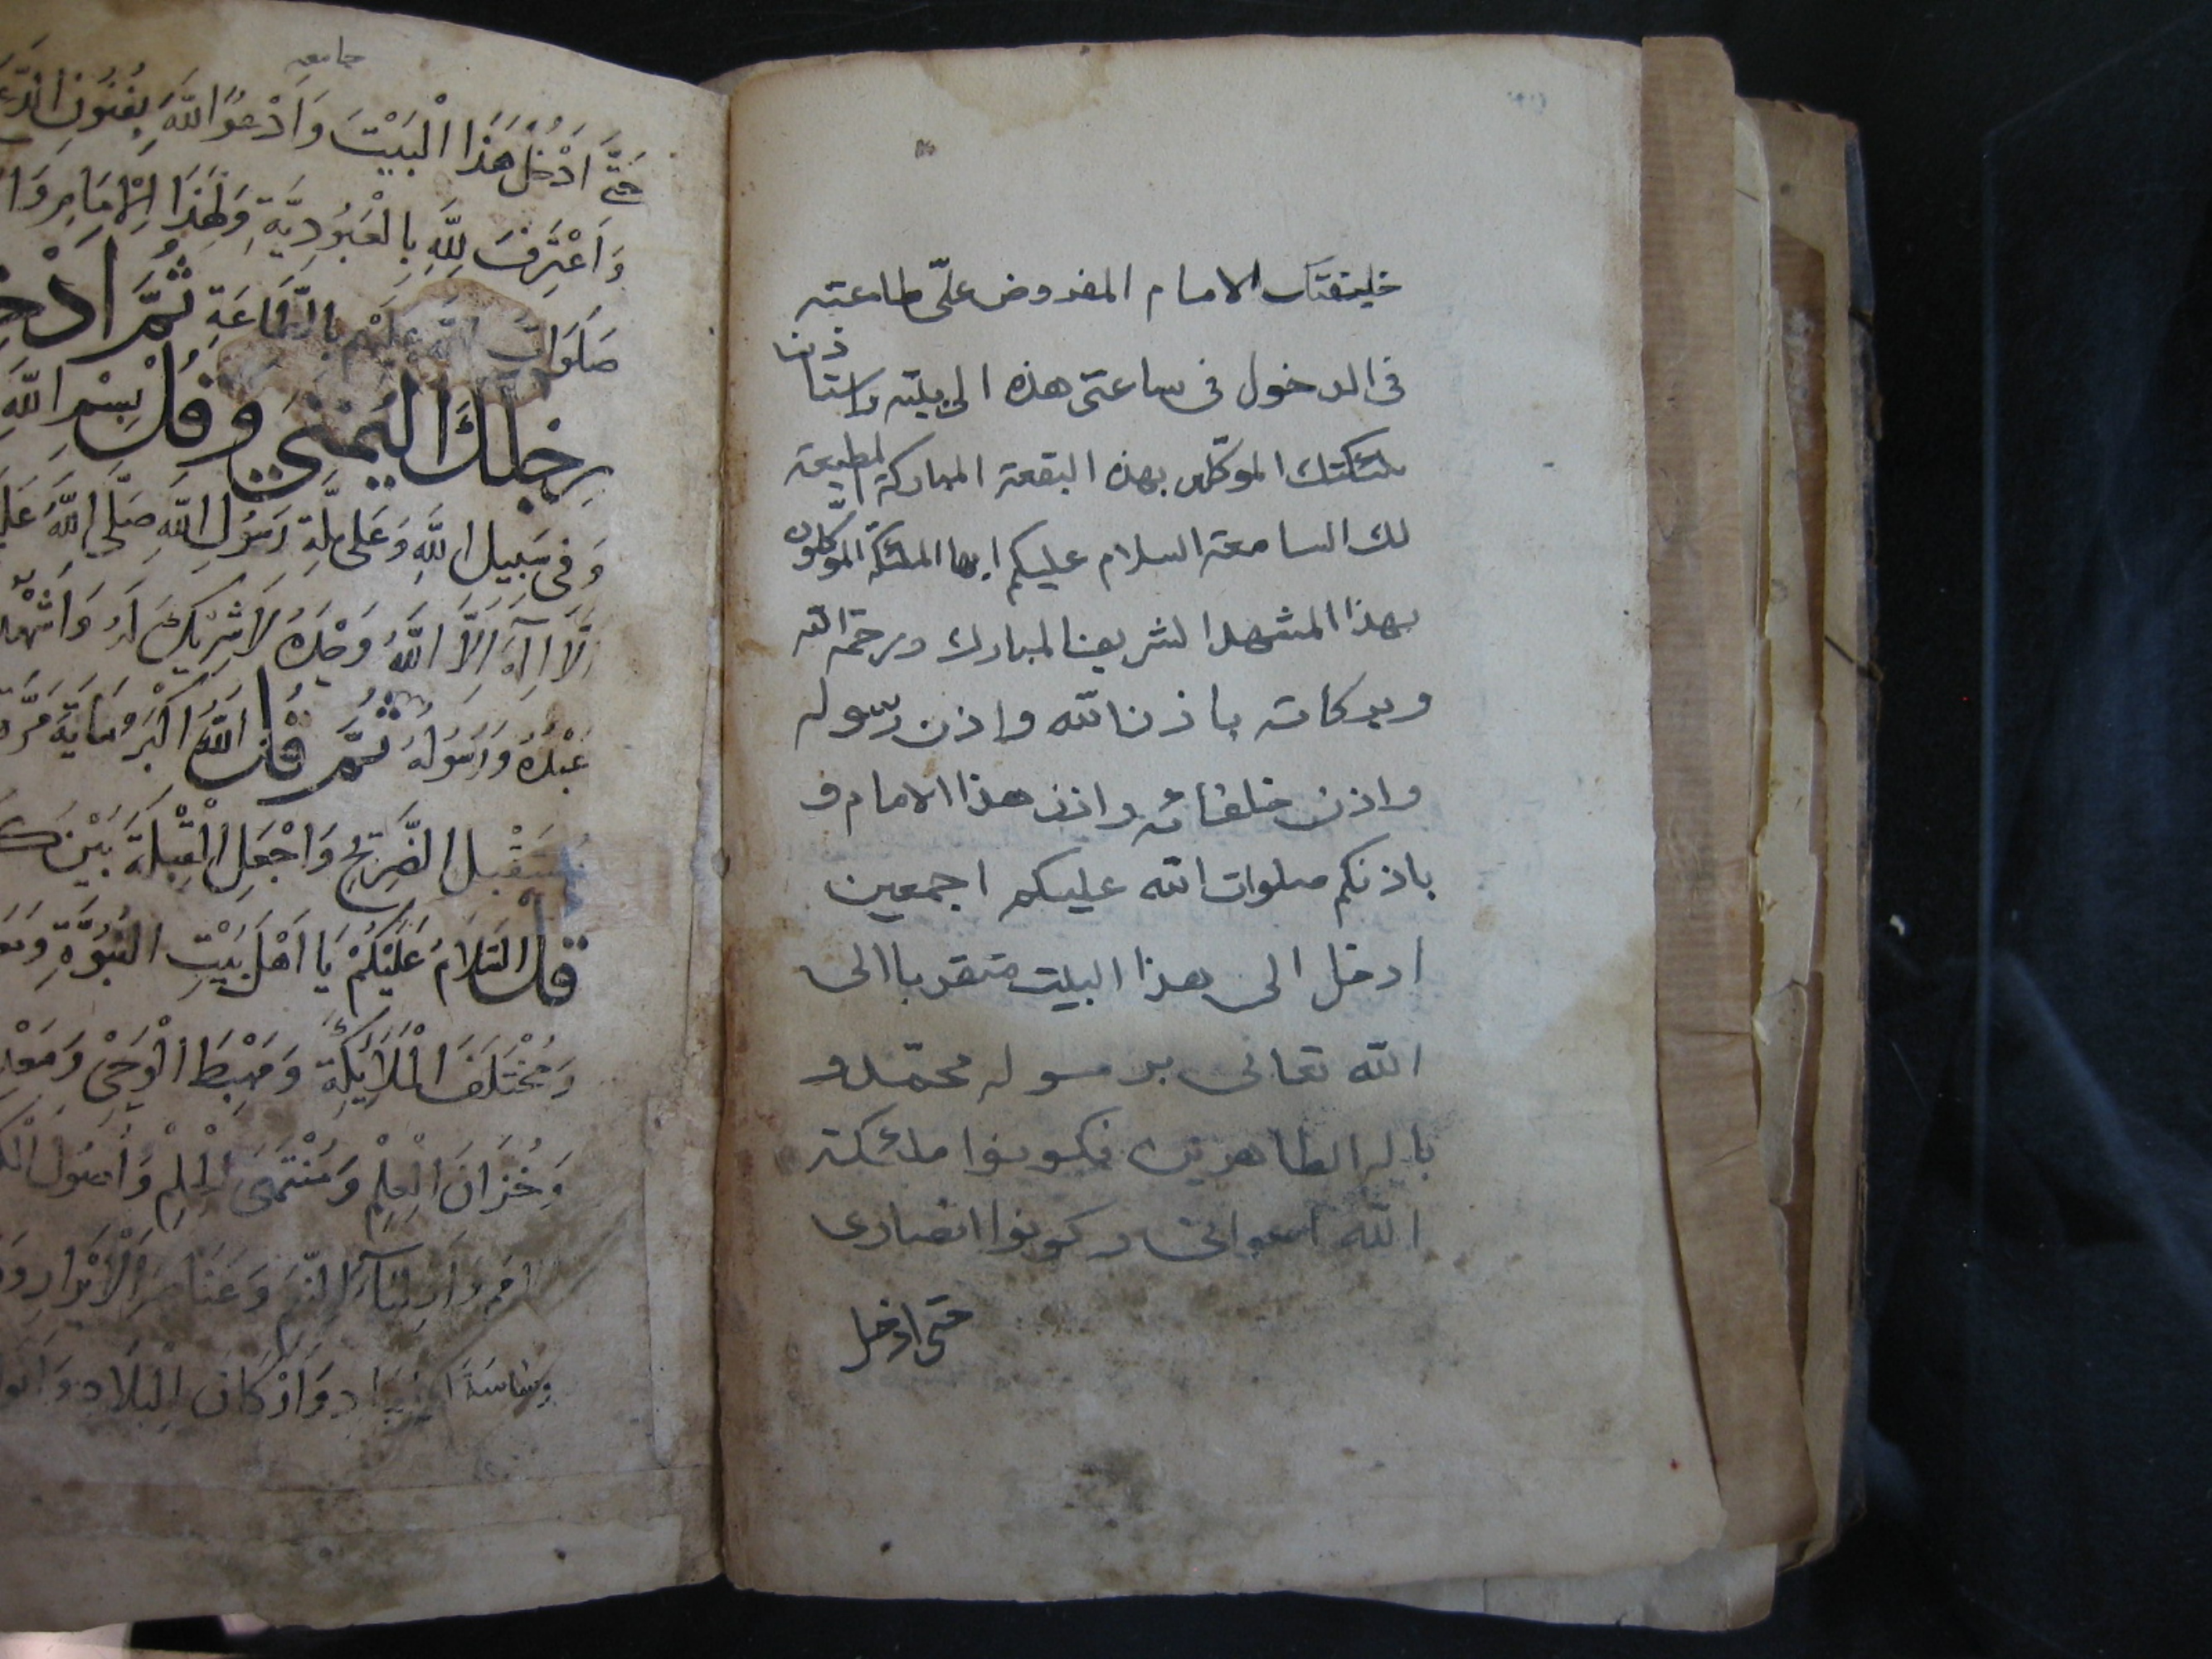 خليفتك الامام المفروض علىّ طاعته
فى الدخول فى ساعتى هذه الى بيته واستاذن
ملئكتك الموكلين بهذه البقعة المباركة المطيعة
لك السامعة السلام عليكم ايها الملئكة الموكلون
بهذا المشهد الشريف المبارك ورحمة الله
وبركاته باذن الله واذن رسوله
واذن خلفائه واذن هذا الامام و
باذنكم صلوات الله عليكم اجمعين
ادخل الى هذا البيت متقربا الى
الله تعالى برسوله محمّد و
باله الطاهرين فكونوا ملئكة
الله اعوانى وكونوا انصارى
حتى ادخل
جامعه
حَتَّى اَدْخُلَ هَذَا الْبَيْتَ وَاَدْعُوَ اللَّهَ بِفُنُونِ
وَاَعْتَرِفَ لِلَّهِ بِالْعُبُودِيَّةِ وَلِهَذَا الْاِمَامِ
صَلَوَاتُ اللَّهِ عَلَيْهِمْ بِالطَّاعَةِ ثُمَّ
رِجْلَكَ الْيُمْنَى وَقُلْ بِسْمِ اللَّهِ
وَفِى سَبِيلِ اللَّهِ وَعَلَى مِلَّةِ رَسُولِ اللَّهِ صَلَّى اللَّهُ
لَا اِلَهَ اِلَّا اللَّهُ وَحْدَهُ لَا شَرِيكَ لَهُ وَاَشْهَدُ
عَبْدُهُ وَرَسُولُهُ ثُمَّ قُلْ اَللَّهُ اَكْبَرُ مِايَةَ مَرَّة
مُسْتَقْبِلَ الضَّرِيحِ وَاجْعَلِ الْقِبْلَةَ بَيْنَ
قُلْ السَّلَامُ عَلَيْكُمْ يَا اَهْلَ بَيْتِ النُّبُوَّةِ
وَمُخْتَلَفَ الْمَلَائِكَةِ وَمَهْبِطَ الْوَحْىِ
وَخُزَّانَ الْعِلْمِ وَمُنْتَهَى الْحِلْمِ وَاُصُولَ
وَاَوْلِيَآءَ النِّعَمِ وَعَنَاصِرَ الْاَبْرَارِ
وَاَرْكَانَ الْبِلَادِ